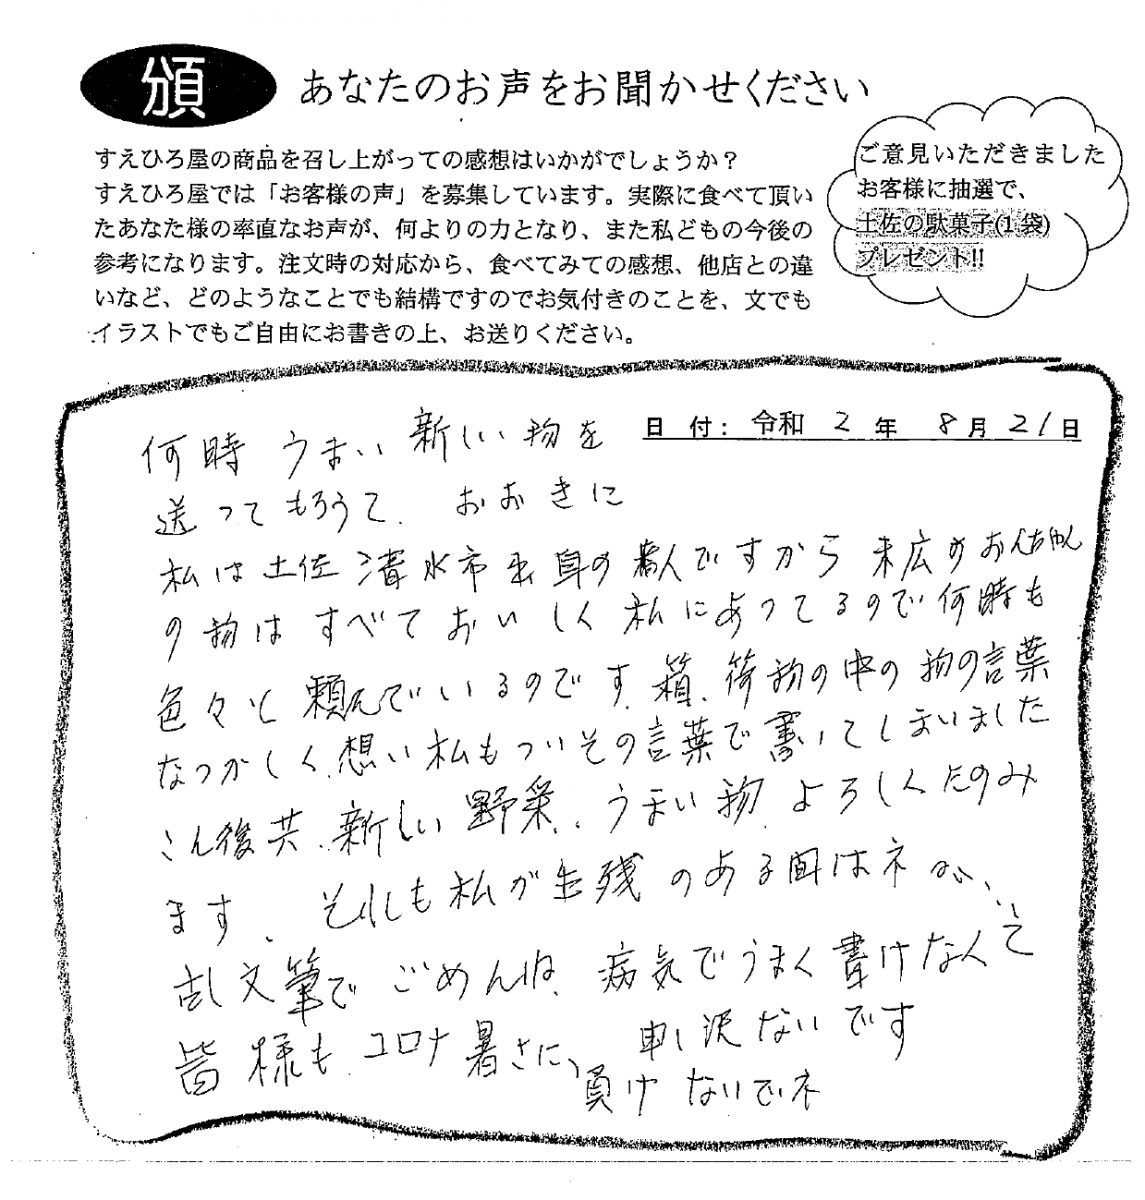 頒
あなたのお声をお聞かせください
すえひろ屋の商品を召し上がっての感想はいかがでしょうか？
すえひろ屋では「お客様の声」を募集しています。実際に食べて頂い
たあなた様の率直なお声が、何よりの力となり、また私どもの今後の
参考になります。注文時の対応から、食べてみての感想、他店との違
いなど、どのようなことでも結構ですのでお気付きのことを、文でも
イラストでもご自由にお書きの上、お送りください。
ご意見いただきました
お客様に抽選で、
土佐の駄菓子(1袋)
プレゼント!!
日 付：令和 2 年 8月 21日
何時 うまい 新しい 物を
送ってもろうて、おおきに
私は土佐清水市出身の人ですから 末広のおんちゃん
の物は すべて おいしく 私にあってるので 何時も
色々と 頼んでいるのです、箱、荷物の中の物の言葉
なつかしく、想い私もついその言葉で書いてしまいました
こん後共、新しい 野菜、うまい物、よろしくたのみ
ます、それも私が生残のある間はネ
乱文筆で ごめんね、病気でうまく書けなんて
申し訳ないです
皆様も、コロナ 暑さに、
負けないでネ